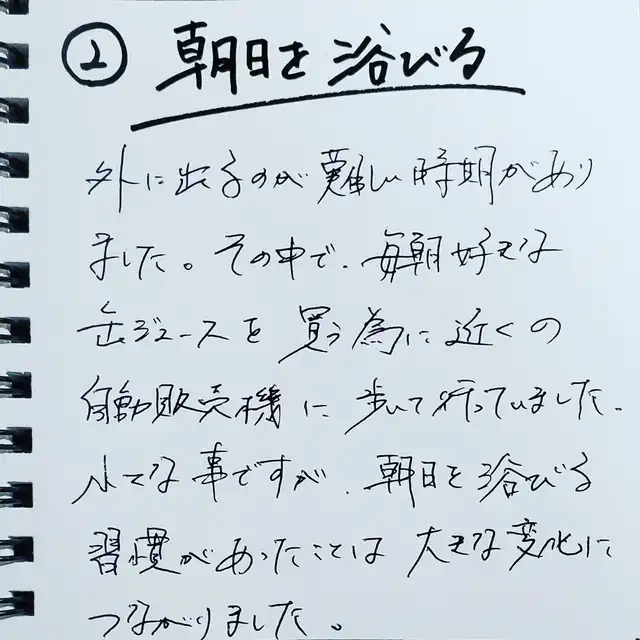 ② 朝日を浴びる
外に出るのが難しい時期があり
ました。その中で、毎朝好きな
缶ジュースを買う為に近くの
自動販売機に歩いて行っていました。
小さな事ですが、朝日を浴びる
習慣があったことは大きな変化に
つながりました。